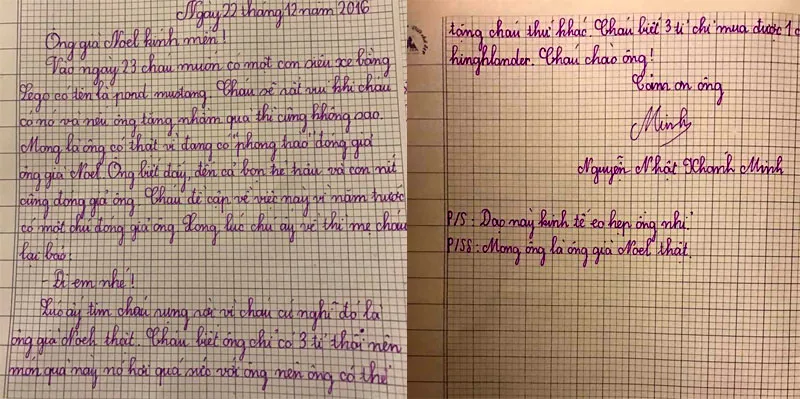 Ngày 22 tháng 12 năm 2016
Ông già Noel kính mến!
Vào ngày 23 cháu muốn có một con siêu xe bằng
Lego có tên là pond mustang. Cháu sẽ rất vui khi cháu
có nó và nếu ông tặng nhầm quà thì cũng không sao.
Mong là ông có thật vì đang có "phong trào" đóng giả
ông già Noel. Ông biết đấy, đến cả bọn hề hàu và con nít
cũng đóng giả ông. Cháu đề cập về việc này vì năm trước
có một chú đóng giả ông. Xong lúc chú ấy về thì mẹ cháu
lại bảo:
- Đi em nhé!
Lúc ấy tim cháu rụng rời vì cháu cứ nghĩ đó là
ông già Noel thật. Cháu biết ông chỉ có 3 tỉ thôi nên
món quà này nó hơi quá sức với ông nên ông có thể
tặng cháu thứ khác. Cháu biết 3 tỉ chỉ mua được 1 c
hinghlander. Cháu chào ông!
Cảm ơn ông
Minh
Nguyễn Nhật Khánh Minh
P/S: Dạo này kinh tế eo hẹp ông nhỉ.
P/SS: Mong ông là ông già Noel thật.